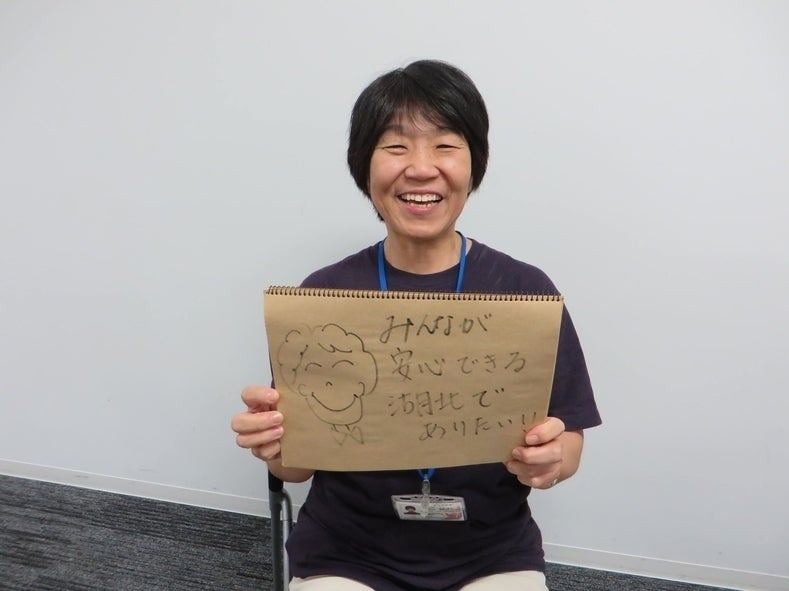 みんなが
安心できる
湖北で
ありたい!!